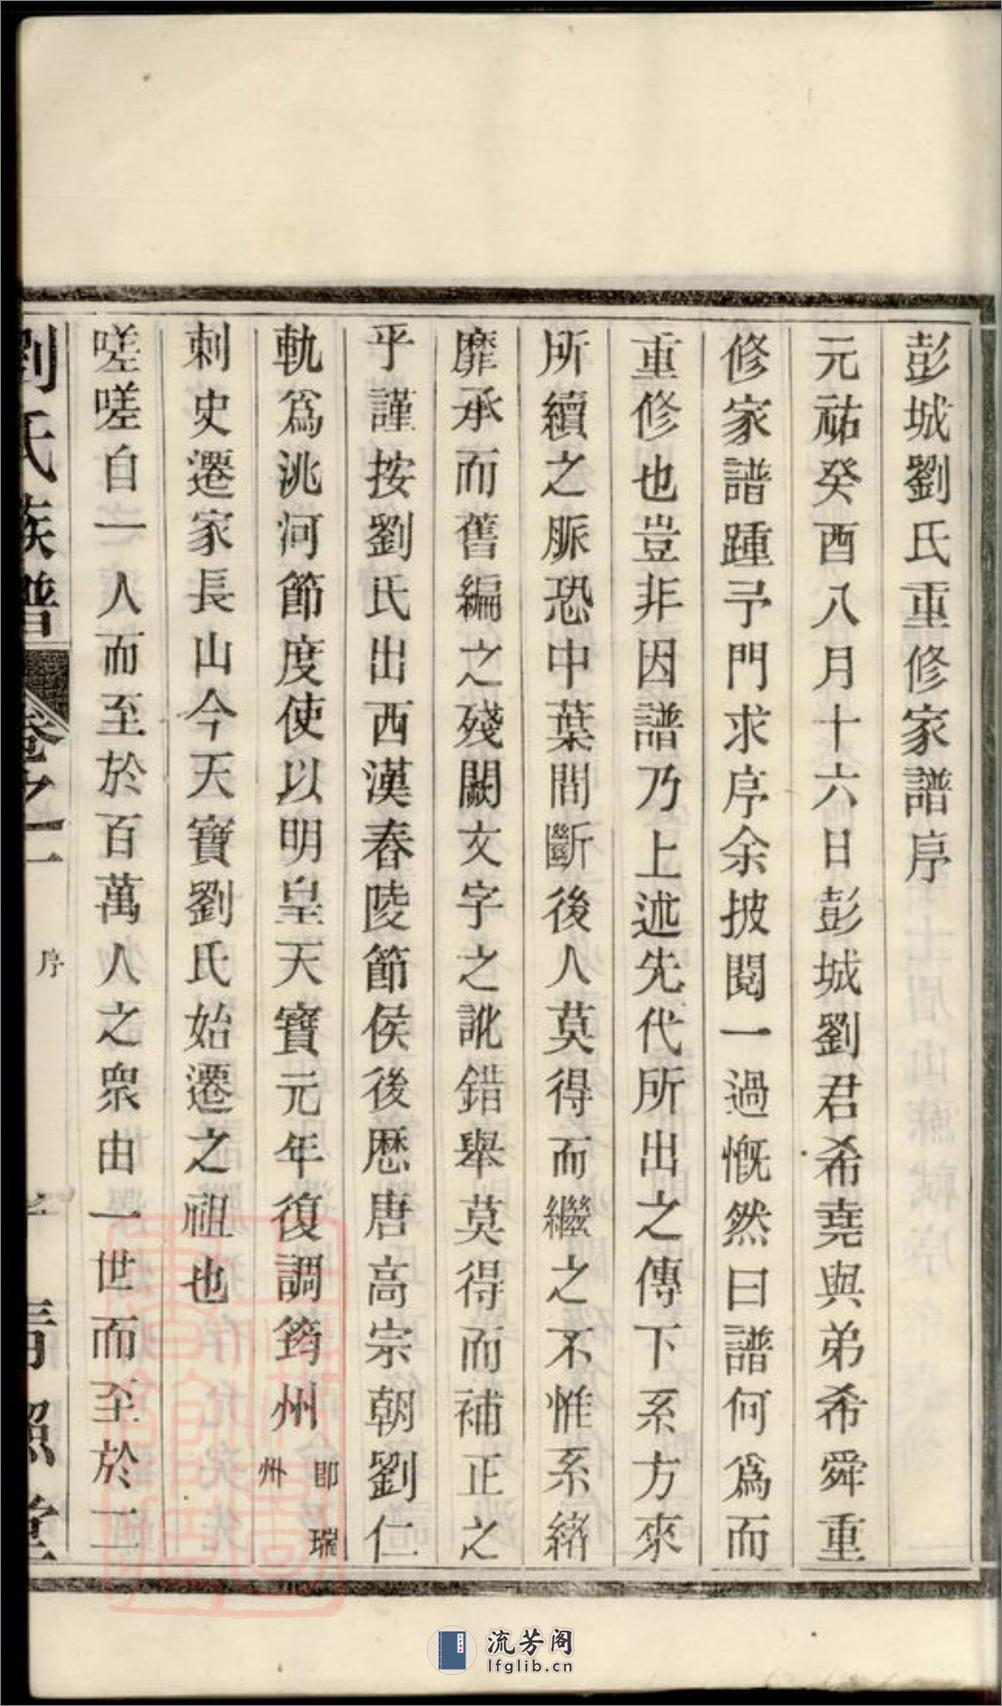 彭城劉氏重修家譜序
元祐癸酉八月十六日彭城劉君希堯與弟希舜重
修家譜踵予門求序余披閱一過慨然曰譜何爲而
重修也豈非因譜乃上述先代所出之傳下系方來
所續之脈恐中葉間斷後人莫得而繼之不惟系緒
靡承而舊編之殘闕文字之訛錯舉莫得而補正之
乎謹按劉氏出西漢舂陵節侯後歷唐高宗朝劉仁
軌爲洮河節度使以明皇天寶元年復調筠州即瑞州
刺史遷家長山今天寶劉氏始遷之祖也
嗟嗟自一人而至於百萬人之衆由一世而至於二
劉氏族譜 卷之一 序 青照堂
流芳阁
lfglib.cn